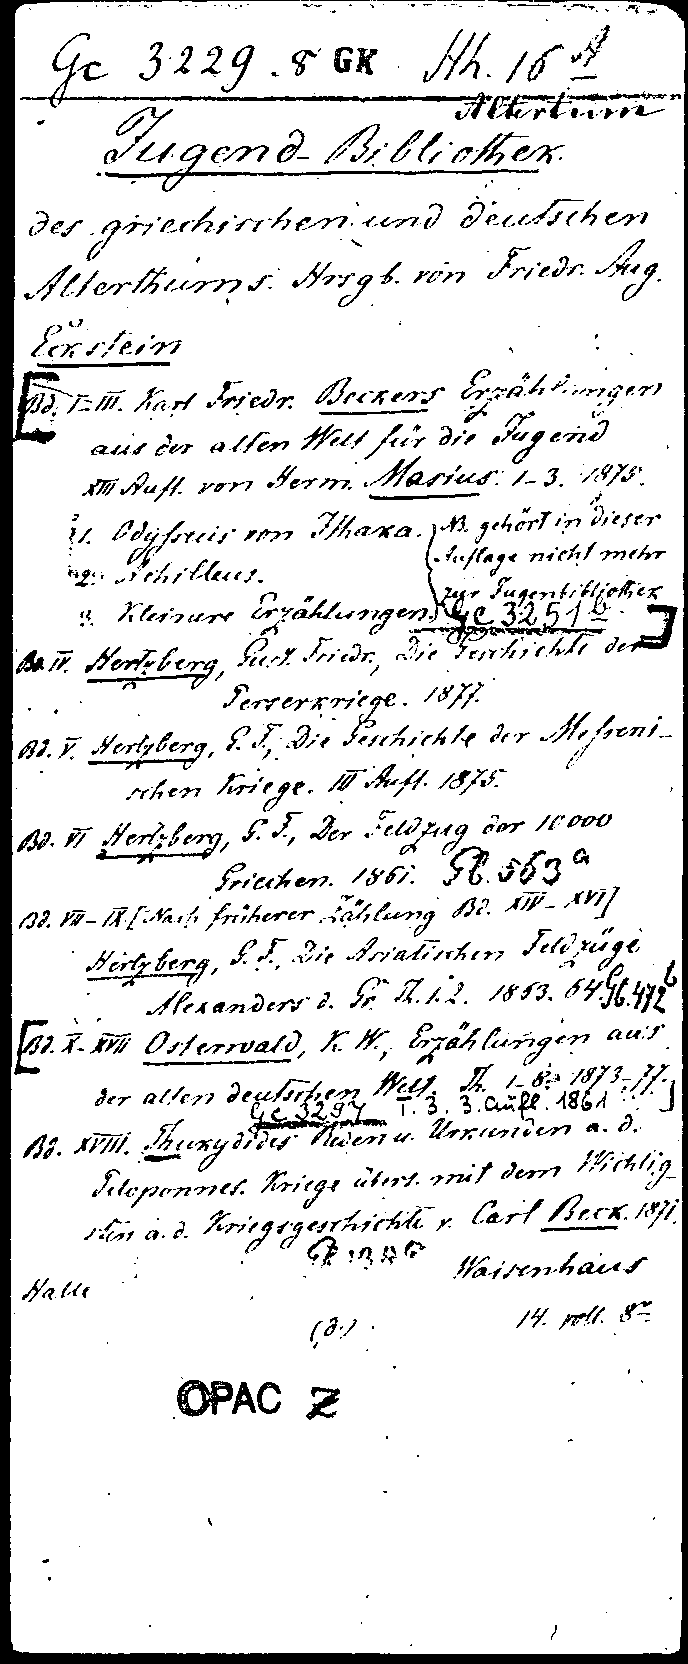 Gc 3229.8 GK Hh. 16 A
Altertum
Jugend-Bibliothek.
des griechischen und deutschen
Alterthums. Hrsgb. von Friedr. Aug.
Eckstein
Bd. I-III. Karl Friedr. Beckers Erzählungen
aus der alten Welt für die Jugend
XIII Aufl. von Herm. Masius. 1-3. 1875.
1. Odysseus von Ithaka. NB. gehört in dieser
2. Achilleus. Auflage nicht mehr
zur Jugenbibliothek
3. Kleinere Erzählungen. Gc 3251 b
Bd. IV. Hertzberg, Gust. Friedr., Die Geschichte der
Perserkriege. 1877.
Bd. V. Hertzberg, G. F., Die Geschichte der Messeni-
schen Kriege. III Aufl. 1875.
Bd. VI Hertzberg, G. F., Der Feldzug der 10000
Griechen. 1861. Gb. 563 a
Bd. VII-IX [Nach früherer Zählung Bd. XIV-XVI]
Hertzberg, G. F., Die Asiatischen Feldzüge
Alexanders d. Gr. Th. 1. 2. 1863. 64. Gb. 472 b
Bd. X-XVII Osterwald, K. W., Erzählungen aus
der alten deutschen Welt. Th. 1-8. 1873-77.
Gc 3297 T. 3. 3. Aufl. 1861
Bd. XVIII. Thukydides Reden u. Urkunden a. d.
Peloponnes. Kriege übers. mit dem Wichtig-
sten a. d. Kriegsgeschichte v. Carl Beck. 1871.
Waisenhaus
Halle
(d.) 14. voll. 8°
OPAC Z